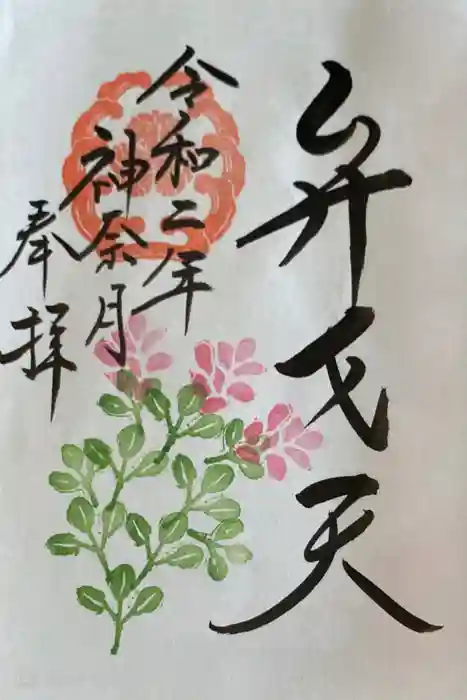 弁戈天
令和二年
神奈月
奉拝